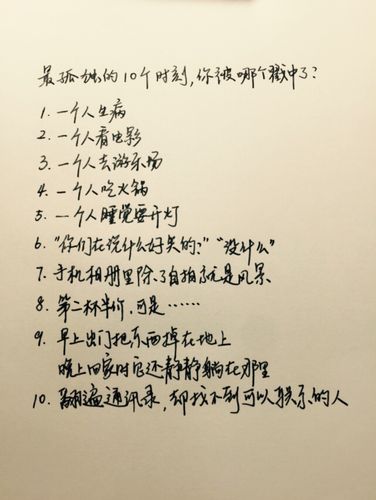 最孤独的10个时刻,你被哪个戳中了?
1. 一个人生病
2. 一个人看电影
3. 一个人去游乐场
4. 一个人吃火锅
5. 一个人睡觉要开灯
6. "你们在说什么好笑的?" "没什么"
7. 手机相册里除了自拍就是风景
8. 第二杯半价,可是……
9. 早上出门把东西掉在地上
晚上回家时它还静静躺在那里
10. 翻遍通讯录,却找不到可以联系的人